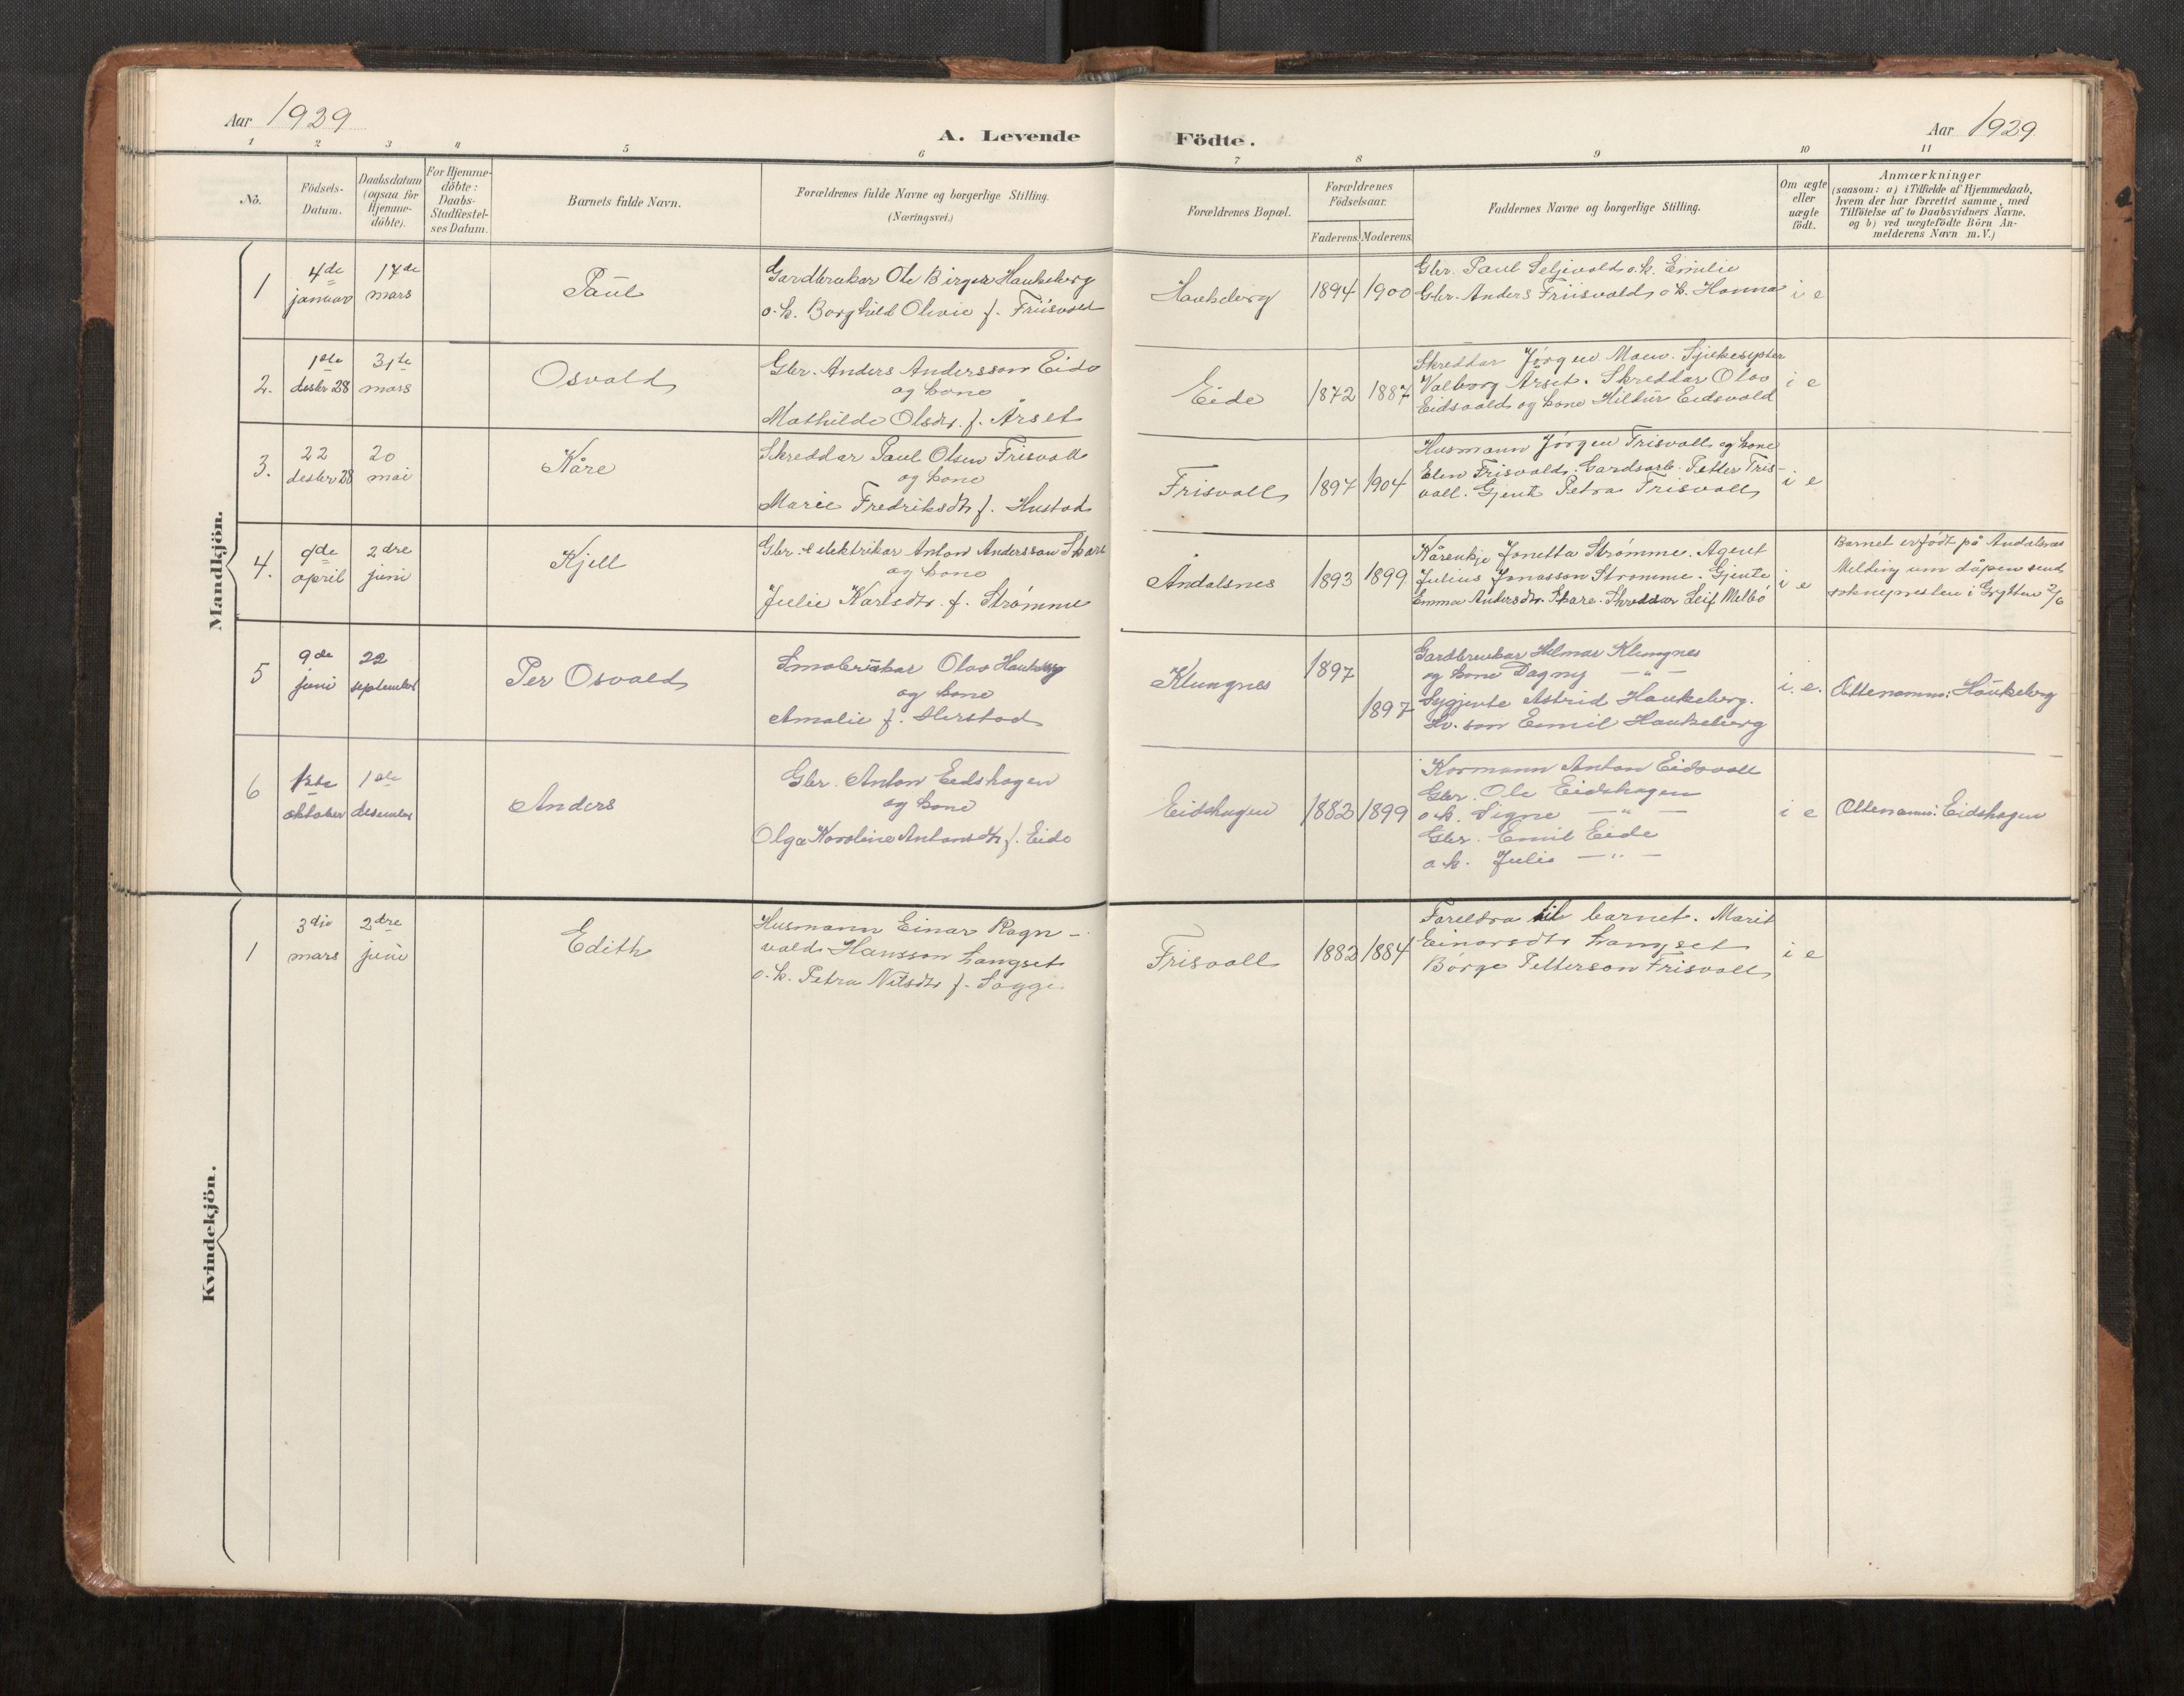 Aar 1929
A. Levende
Födte.
Aar 1929.
1 2 3 4 5 6 7 8 9 10 11
No.
Födsels-
Datum.
Daabsdatum
(ogsaa for
Hjemme-
döbte).
For Hjemme-
döbte:
Daabs-
Stadfæstel-
ses Datum.
Barnets fulde Navn.
Forældrenes fulde Navne og borgerlige Stilling.
(Næringsvei.)
Forældrenes Bopæl.
Forældrenes
Födselsaar.
Faderens. Moderens.
Faddernes Navne og borgerlige Stilling.
Om ægte
eller
uægte
födt.
Anmærkninger
(saasom: a) i Tilfælde af Hjemmedaab,
hvem der har forrettet samme, med
Tilföielse af to Daabsvidners Navne,
og b) ved uægtefödte Börn An-
melderens Navn m.V.)
Mandkjön.
1
4de
januar
17de
mars
Paul
Gardbrukar Ole Birger Haukeberg
o. k. Borghild Olivie f. Friisvold
Haukeberg
1894 1900
Gbr. Paul Seljevold o.k. Emilie
Gbr. Anders Friisvold o k. Hanna
i e
2.
1ste
desbr 28
31te
mars
Osvald
Gbr. Anders Andersson Eide
og kone
Mathilde Olsdtr. f. Årset
Eide
1872 1887
Skreddar Jørgen Moen. Sjukesyster
Valborg Årset. Skreddar Olav
Eidsvold og kone Hildur Eidsvold
i e
3.
22
desbr 28
20
mai
Kåre
Skreddar Paul Olsen Frisvoll
og kone
Marie Fredriksdtr f. Hustad
Frisvoll
1897 1904
Husmann Jørgen Frisvoll og kone
Elen Frisvold. Gardsarb. Petter Fris-
voll. Gjente Petra Frisvoll
i e
4.
9de
april
2dre
juni
Kjell
Gbr. & elektrikar Anton Andersson Skare
og kone
Julie Karlsdtr. f. Strømme
Åndalsnes
1893 1899.
Kårenkje Jonetta Strømme. Agent
Julius Jonasson Strømme. Gjente
Emma Andersdtr. Skare. Skreddar Leif Melbø
i e
Barnet er født på Åndalsnes
Melding um dåpen send
soknepresten i Grytten 2/6
5
9de
juni
22
september
Per Osvald
Småbrukar Olav Haukeberg
og kone
Amalie f. Herstad
Klungnes
1897
1897
Gardbrukar Hilmar Klungnes
og kone Dagny — " —
Sygjente Astrid Haukeberg.
Gb. son Emil Haukeberg
i. e.
Ættenamn: Haukeberg
6
1ste
oktober
1ste
desember
Anders
Gbr. Anton Eidshagen
og kone
Olga Karoline Antonsdtr f. Eide
Eidshagen
1882 1899
Kårmann Anton Eidsvoll
Gbr. Ole Eidshagen
o.k. Signe — " —
Gbr. Emil Eide
o k. Julie — " —
i e
Ættenamn: Eidshagen
Kvindekjön.
1
3die
mars
2dre
juni
Edith
Husmann Einar Ragn-
vald Hansson Langset
o. k. Petra Nilsdtr f. Sogge
Frisvoll
1882 1884
Foreldra til barnet. Marit
Einarsdtr Langset
Børge Petterson Frisvoll
i e